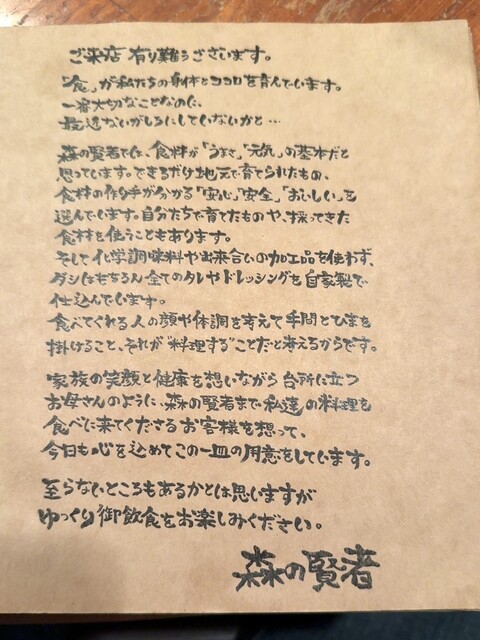 ご来店 有り難うございます。
「食」が私たちの身体とココロを育んでいます。
一番大切なことなのに、
最近ないがしろにしていないかと…
森の賢者では、食料が「うまさ」「元気」の基本だと
思っています。できるだけ地元で育てられたもの、
食料の作り手が分かる「安心」「安全」「おいしい」を
選んでいます。自分たちで育てたものや、採ってきた
食材を使うこともあります。
そして化学調味料や出来合いの加工品を使わず、
ダシはもちろん全てのタレやドレッシングを自家製で
仕込んでいます。
食べてくれる人の顔や体調を考えて手間とひまを
掛けること、それが"料理する"ことだと考えるからです。
家族の笑顔と健康を想いながら台所に立つ
お母さんのように、森の賢者まで私達の料理を
食べに来てくださるお客様を想って、
今日も心を込めてこの一皿の用意をしています。
至らないところもあるかとは思いますが
ゆっくり御飲食をお楽しみください。
森の賢者